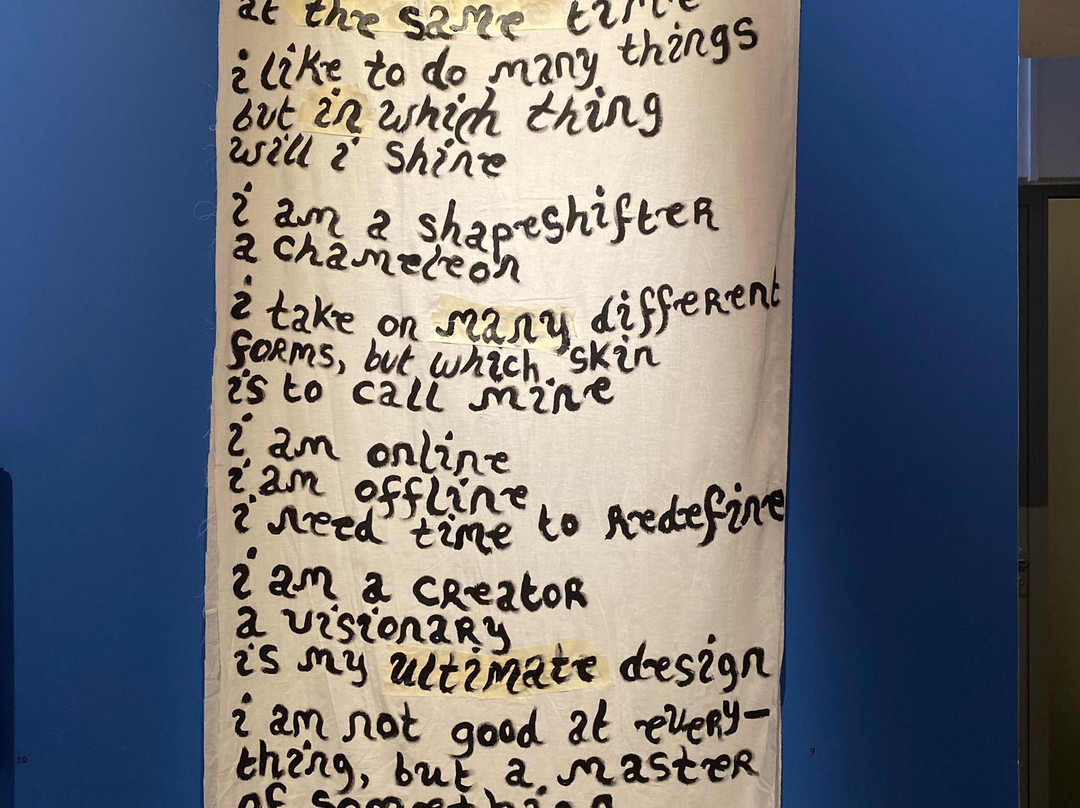 at the same time
i like to do many things
but in which thing
will i shine
i am a shapeshifter
a chameleon
i take on many different
forms, but which skin
is to call mine
i am online
i am offline
i need time to redefine
i am a creator
a visionary
is my ultimate design
i am not good at every-
thing, but a master
of something
10
9